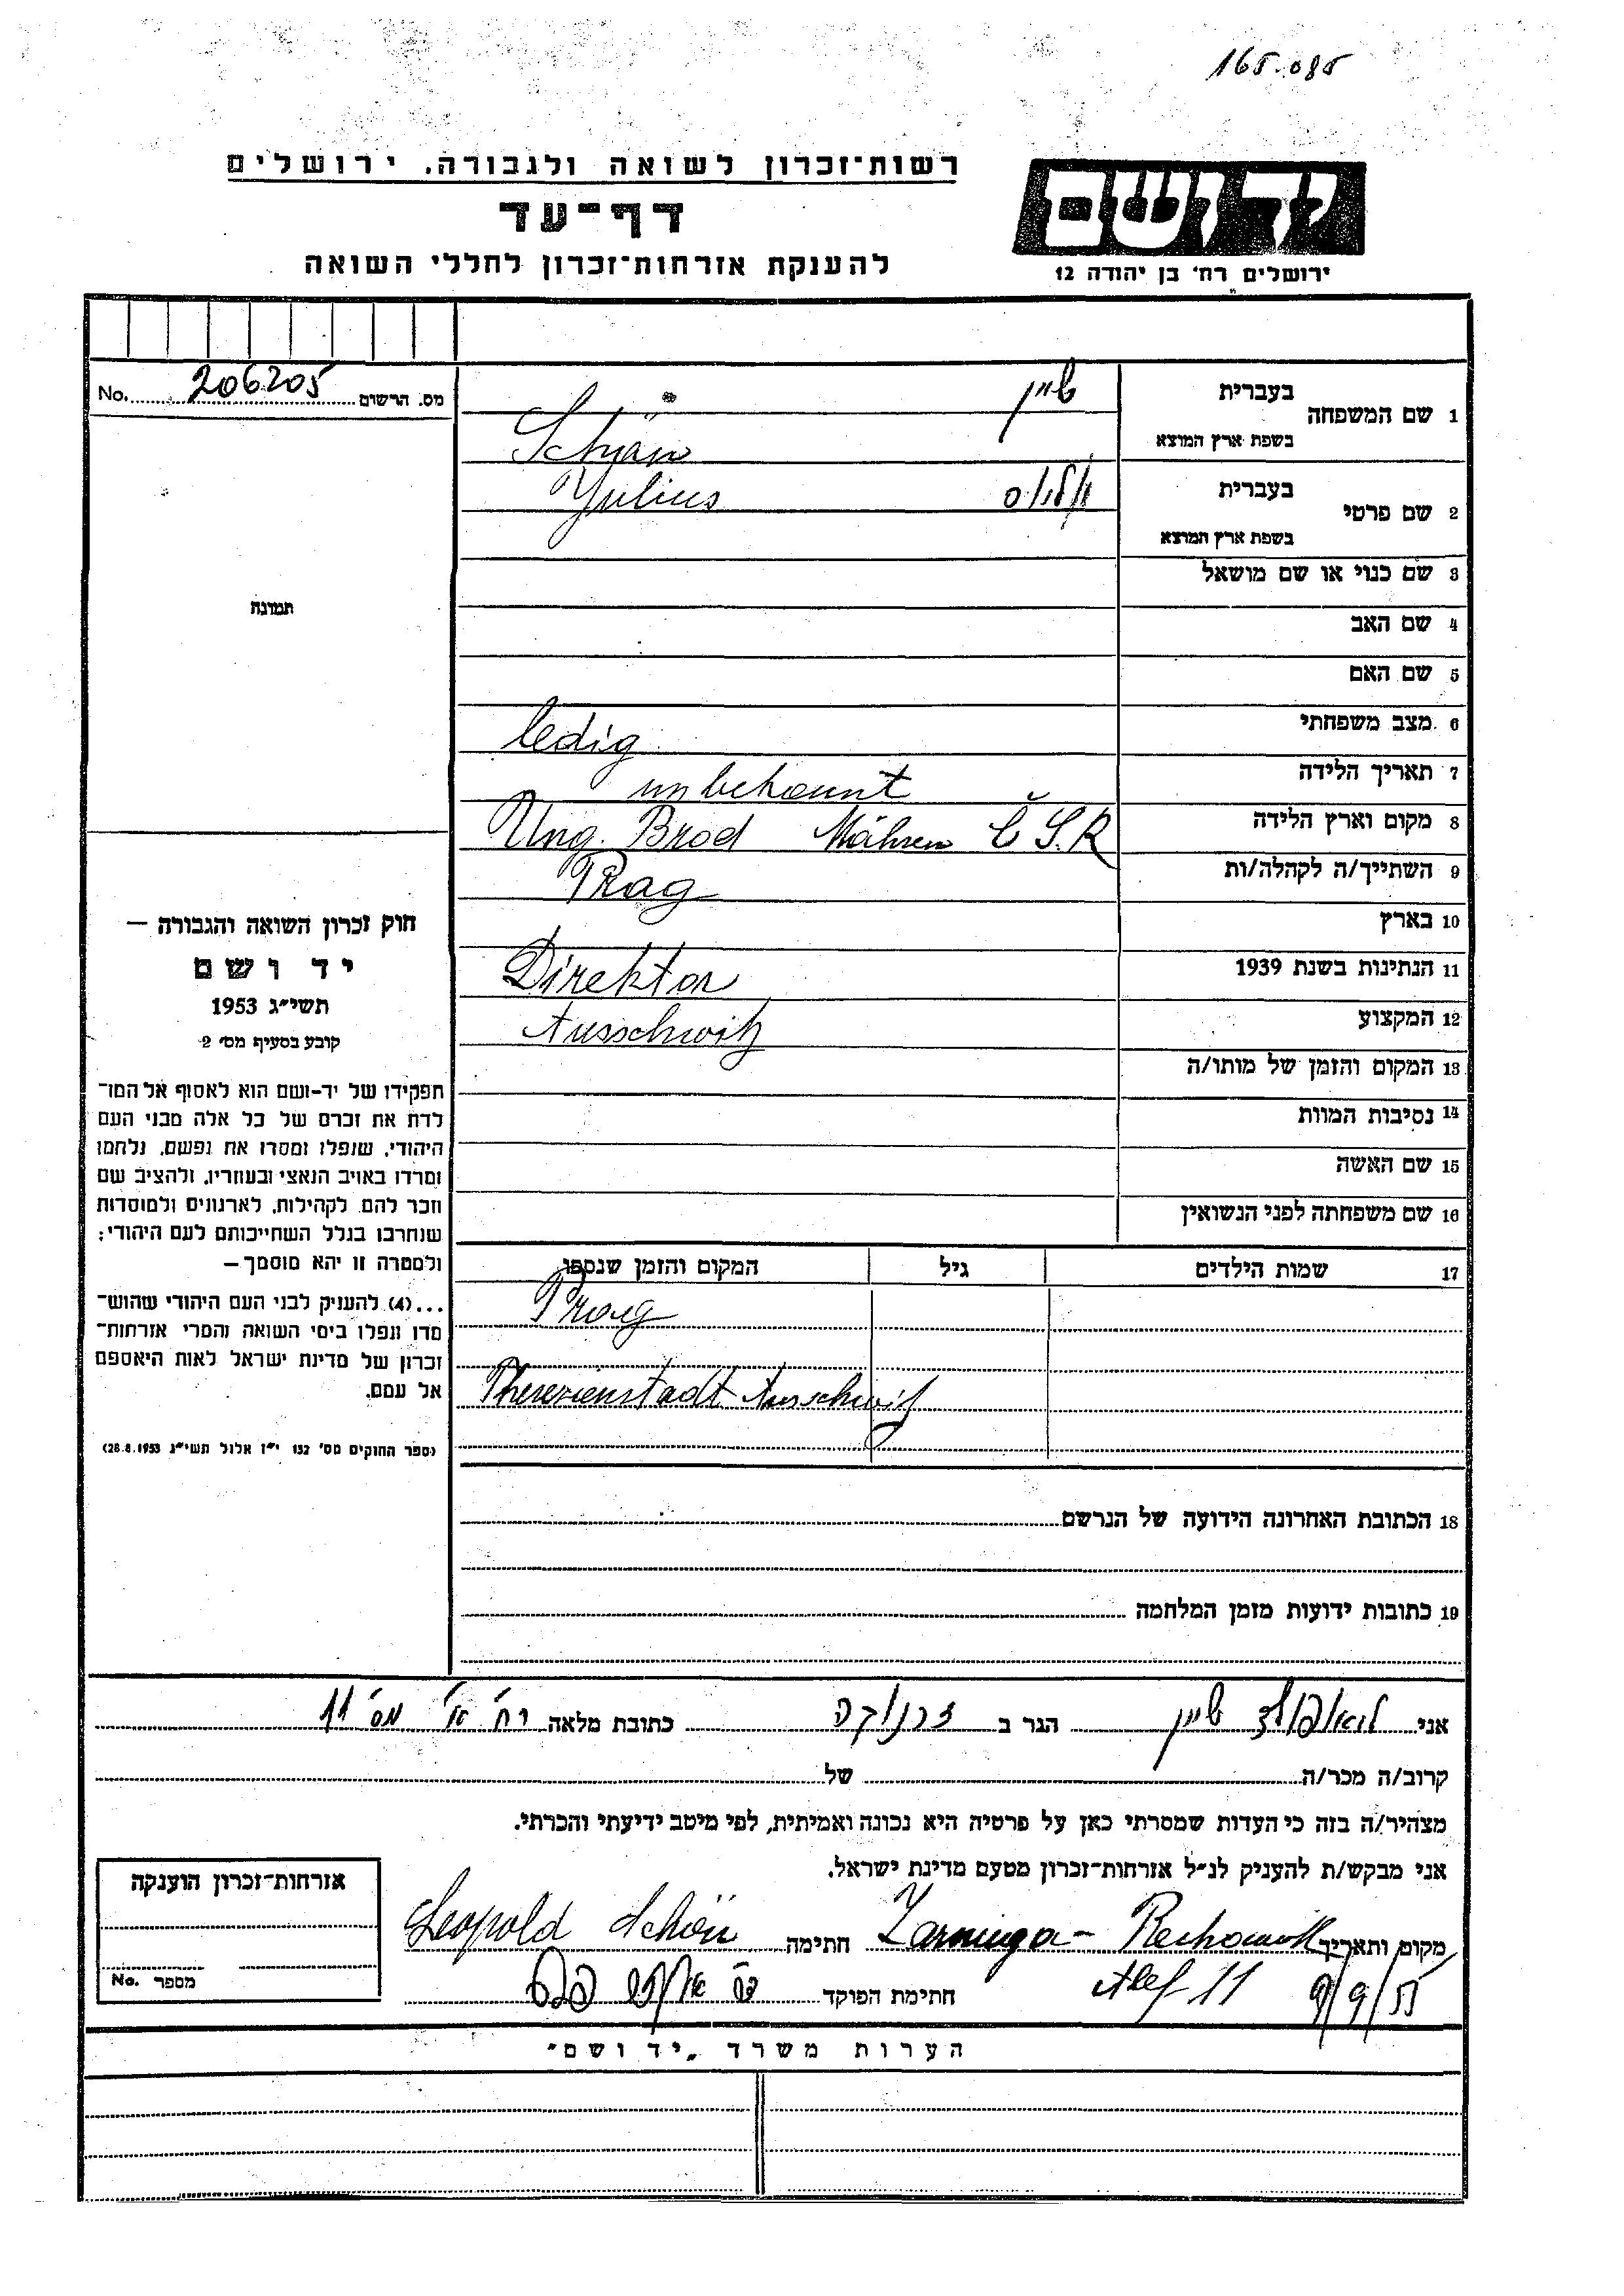 165.085
רשות־זכרון לשואה ולגבורה. ירושלים
דף־עד
להענקת אזרחות־זכרון לחללי השואה
יד ושם
ירושלים רח׳ בן יהודה 12
No. 206205 מס. הרשום
תמונה
חוק זכרון השואה והגבורה —
יד ושם
תשי״ג 1953
קובע בסעיף מס׳ 2
תפקידו של יד-ושם הוא לאסוף אל המו־
לדת את זכרם של כל אלה מבני העם
היהודי, שנפלו ומסרו את נפשם, נלחמו
ומרדו באויב הנאצי ובעוזריו, ולהציב שם
וזכר להם, לקהילות, לארגונים ולמוסדות
שנחרבו בגלל השתייכותם לעם היהודי;
ולמטרה זו יהא מוסמך —
...(4) להעניק לבני העם היהודי שהוש־
מדו ונפלו בימי השואה והמרי אזרחות־
זכרון של מדינת ישראל לאות היאספם
אל עמם.
(ספר החוקים מס׳ 132 י״ז אלול תשי״ג 28.8.1953)
1 שם המשפחה
בעברית שיין
בשפת ארץ המוצא Schön
2 שם פרטי
בעברית יוליוס
בשפת ארץ המוצא Yulius
3 שם כנוי או שם מושאל
4 שם האב
5 שם האם
6 מצב משפחתי ledig
7 תאריך הלידה unbekannt
8 מקום וארץ הלידה Ung. Brod Mähren Č.S.R
9 השתייך/ה לקהלה/ות Prag
10 בארץ
11 הנתינות בשנת 1939 Direktor
12 המקצוע Ausschwitz
13 המקום והזמן של מותו/ה
14 נסיבות המוות
15 שם האשה
16 שם משפחתה לפני הנשואין
17 שמות הילדים גיל המקום והזמן שנספו
Prag
Theresienstadt Ausschwitz
18 הכתובת האחרונה הידועה של הנרשם
19 כתובות ידועות מזמן המלחמה
אני לואפולד שיין הגר ב זרנוקה כתובת מלאה רח׳ א׳ מס׳ 11
קרוב/ה מכר/ה של
מצהיר/ה בזה כי העדות שמסרתי כאן על פרטיה היא נכונה ואמיתית, לפי מיטב ידיעתי והכרתי.
אני מבקש/ת להעניק לנ״ל אזרחות־זכרון מטעם מדינת ישראל.
מקום ותאריך Zarnuga - Rechowoth חתימה Leopold Schön
Alef 11 9/9/55
חתימת הפוקד
אזרחות־זכרון הוענקה
מספר No.
הערות משרד „יד ושם״